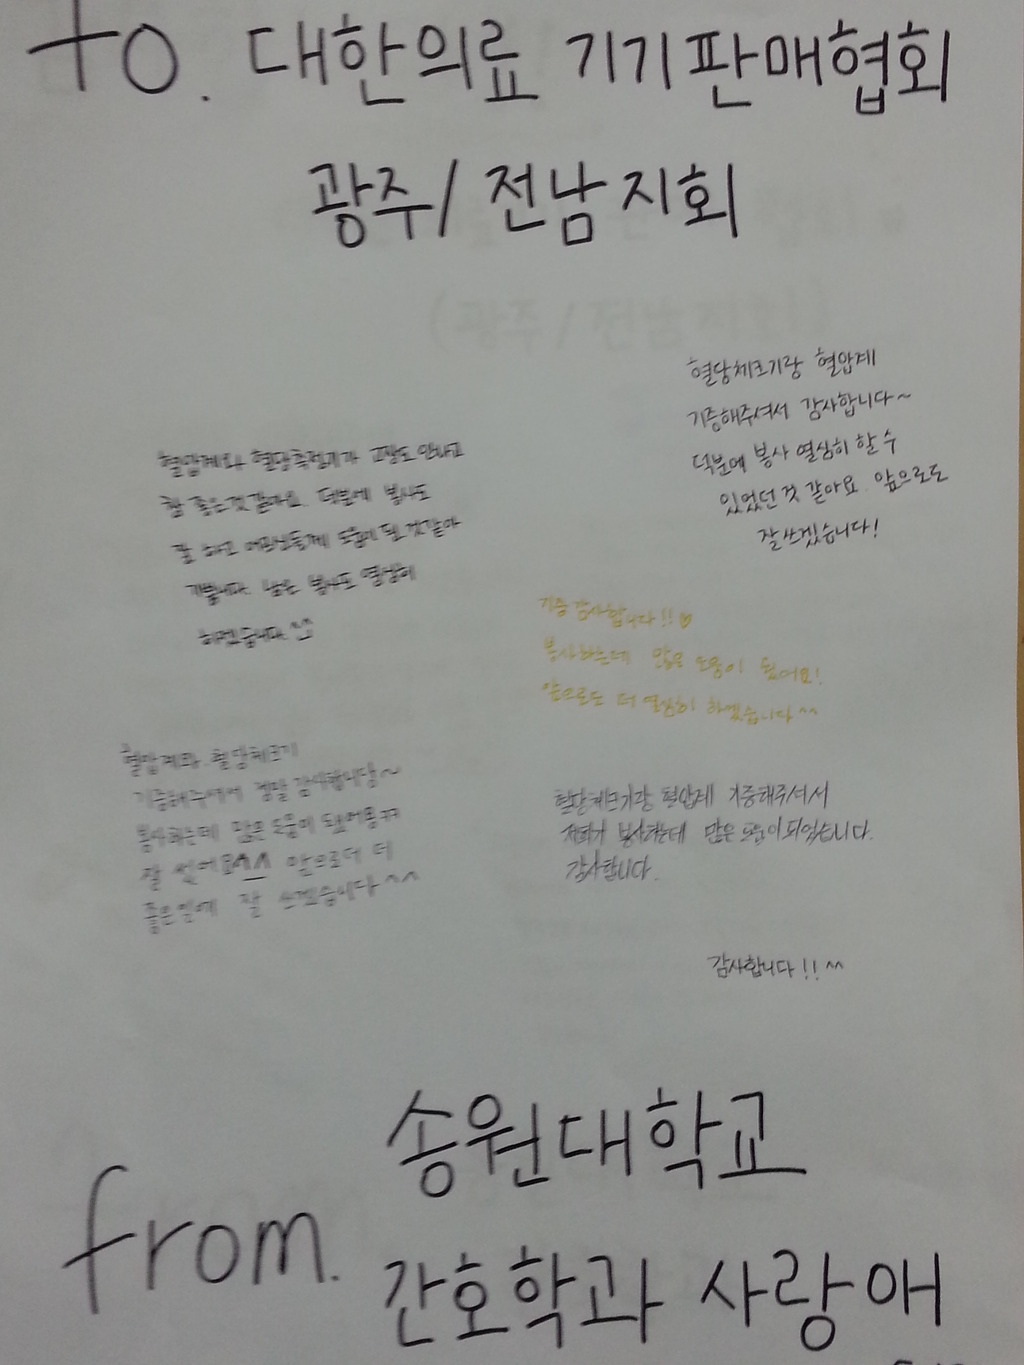 to. 대한의료 기기판매협회
광주/전남지회
혈당체크기랑 혈압계
기증해주셔서 감사합니다~
덕분에 봉사 열심히 할 수
있었던 것 같아요. 앞으로도
잘쓰겠습니다!
혈압계와 혈당측정기가 고장도 안나고
참 좋은것 같아요. 덕분에 봉사도
잘 하고 어르신들께 도움이 된 것 같아
기쁩니다. 남은 봉사도 열심히
하겠습니다. ^^
기증 감사합니다!!♡
봉사하는데 많은 도움이 됬어요!
앞으로도 더 열심히 하겠습니다^^
혈압계와 혈당체크기
기증해주셔서 정말 감사합니당~
봉사하는데 많은 도움이 됬어용ㅠㅠ
잘 썼어요^^ 앞으로더 더
좋은일에 잘 쓰겠습니다^^
혈당체크기랑 혈압계 기증해주셔서
저희가 봉사하는데 많은 도움이 되었습니다.
감사합니다.
감사합니다!! ^^
from. 송원대학교
간호학과 사랑애